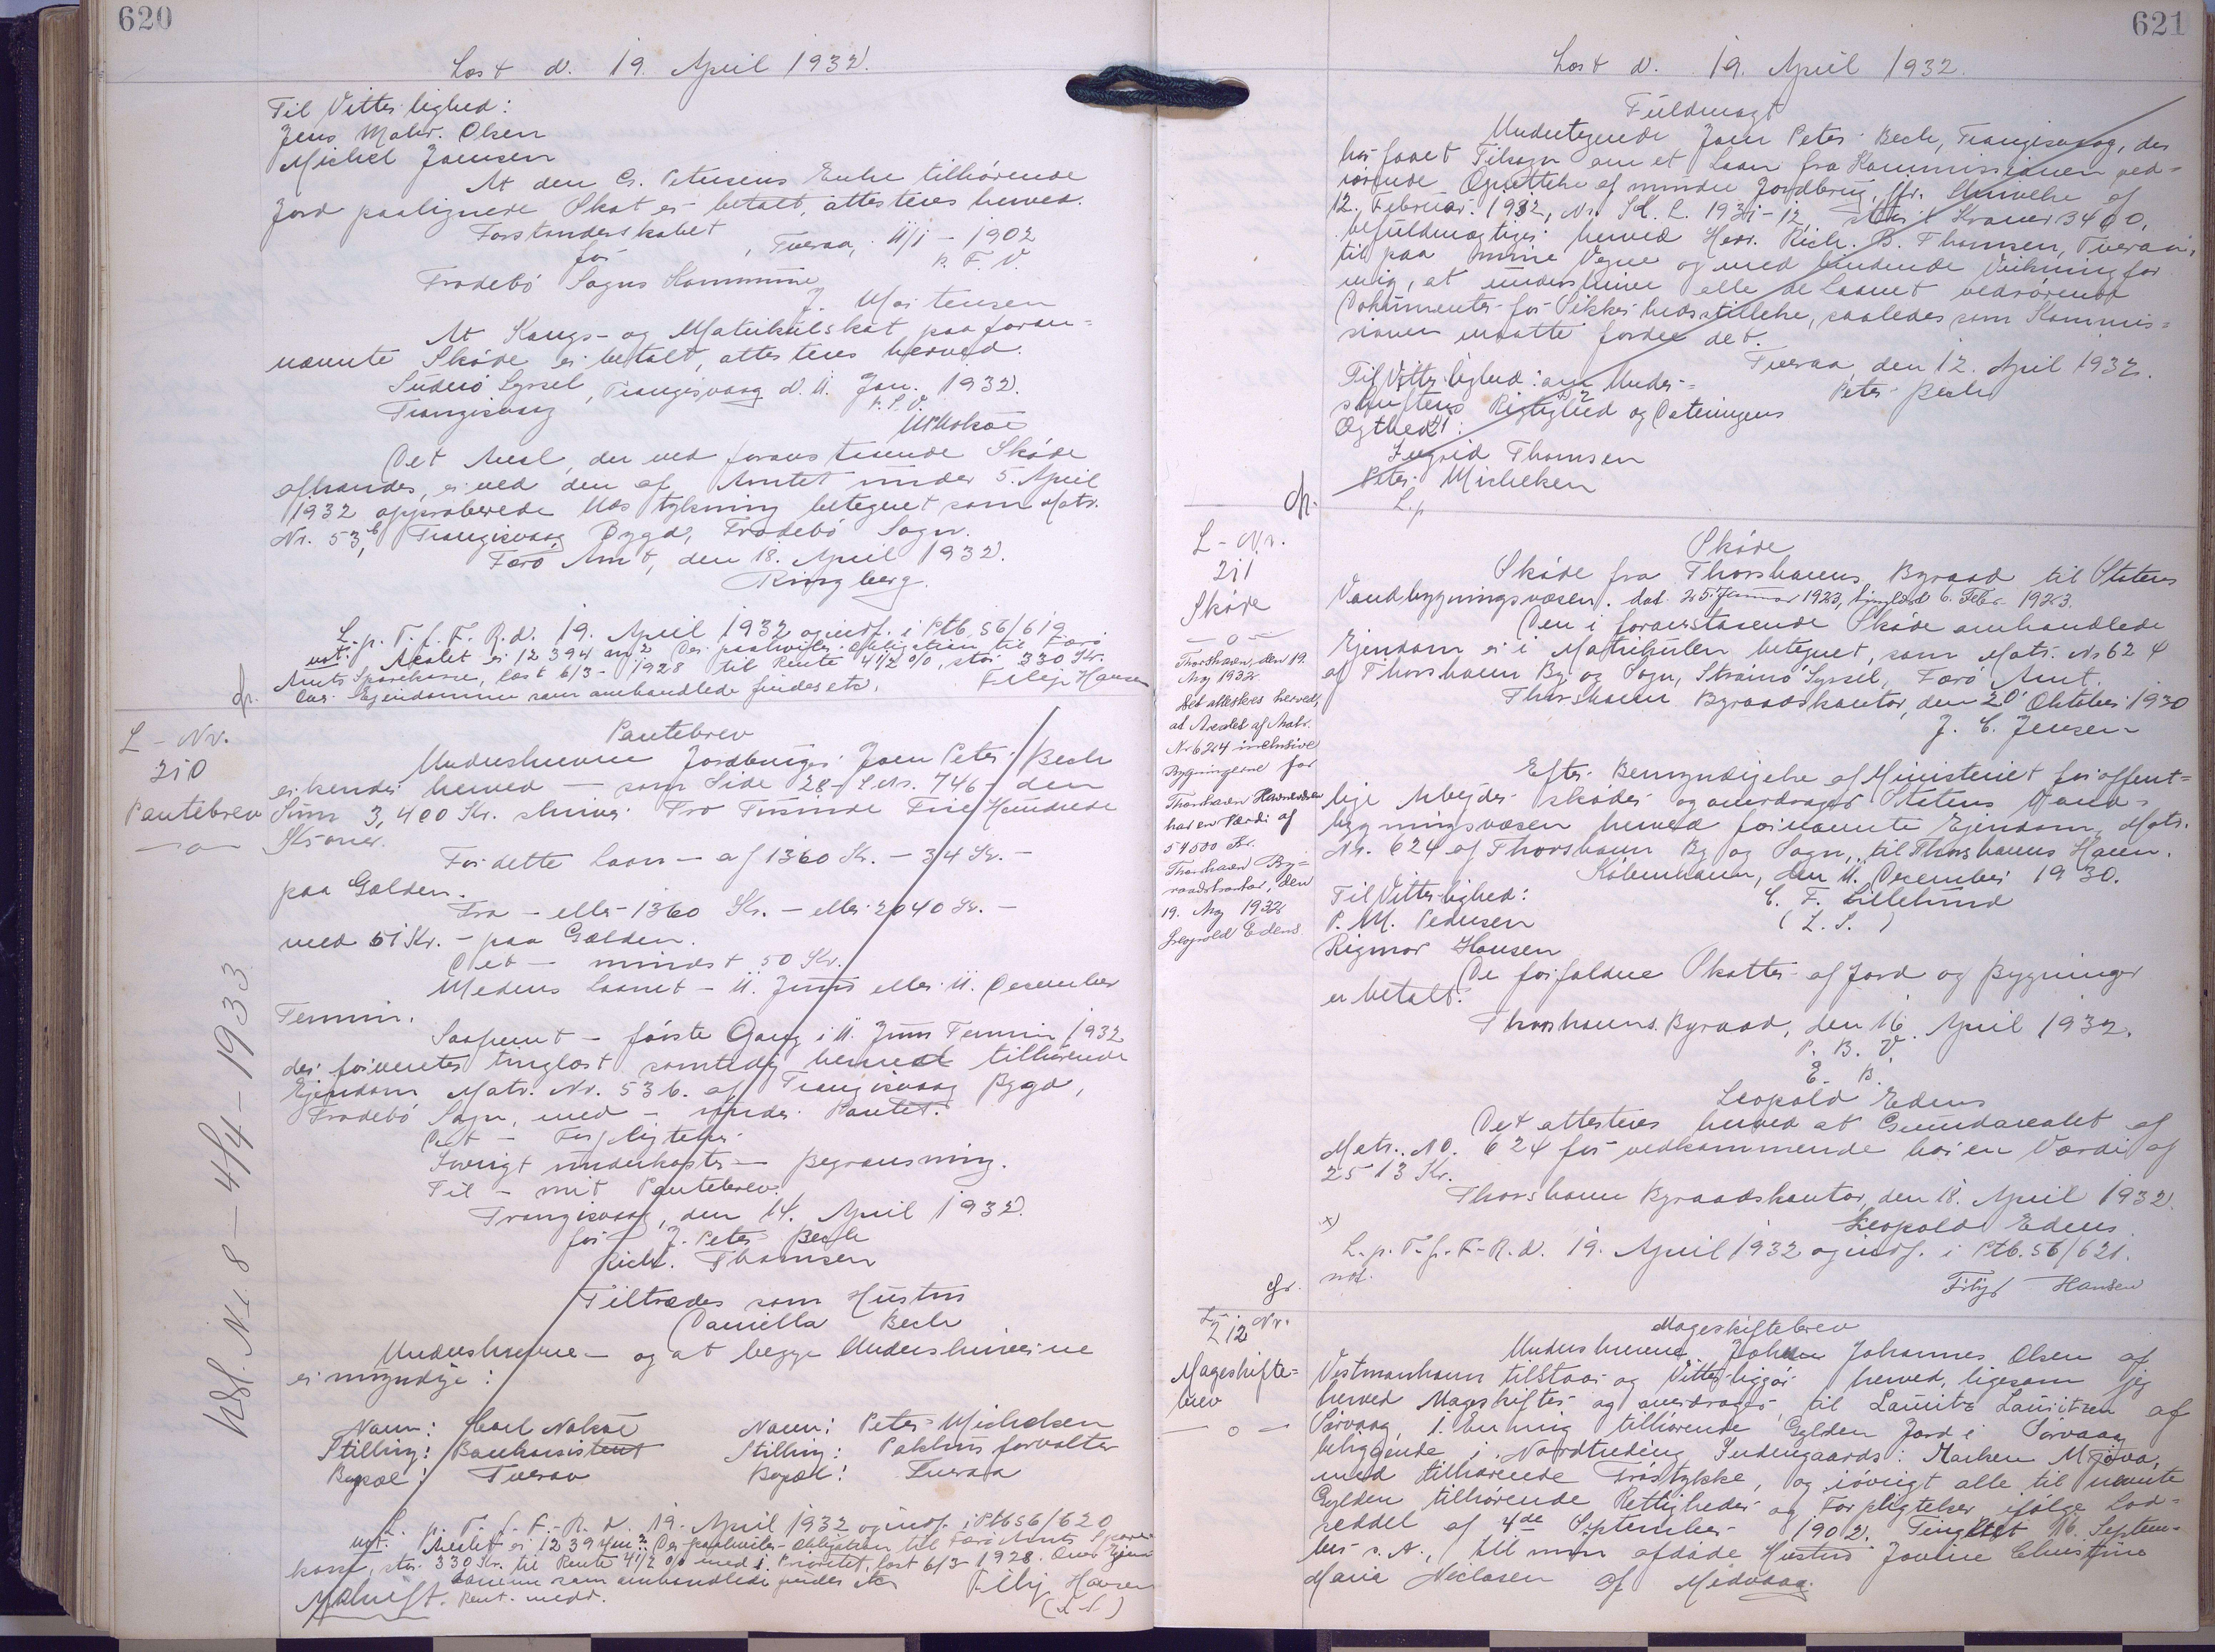 620
Læst d. 19. April 1932.
Til Vitterlighed:
Jens Mohr. Olsen
Michel Joensen
At den Cr. Petersens Enke tilhørende
Jord paalignede Skat er betalt, attesteres herved.
Forstanderskabet
for
, Tveraa, 11/1 - 1902
P. F. V.
Frodebö Sogns Kommune
J. Mortensen
At Kongs- og Matrikulskat paa foran-
nævnte Skøde er betalt, attesteres herved.
Suderö Syssel, Trangisvaag d. 11. Jan. 1932.
Trangisvaag
P. S. V.
Det Areal, der ved foranstaaende Skøde
afhændes, er ved den af Amtet under 5. April
1932 approberede Udstykning betegnet som Matr.
Nr. 53, b Trangisvaag Bygd, Frodebö Sogn.
Færö Amt, den 18. April 1932.
Ringberg.
L. p. T. f. F. R. d. 19. April 1932 og indf. i Ptb. 56/619
not: Arealet er 12394 m2 Der paahviler Obligation til Færö
Amts Sparekasse, læst 6/3 - 1928 til Rente 4 1/2 %, stor 330 Kr.
Over Ejendommen som omhandlede findes etc. Filip Hansen
L - Nr.
210
Pantebrev
—o—
Pantebrev
Underskrevne Jordbruger Joen Peter Bech
erkender herved — som Side 28 - L.Nr. 746 - den
Sum 3,400 Kr. skriver Tre Tusinde Fire Hundrede
Kroner.
For dette Laan — af 1360 Kr. — 34 Kr. —
paa Gælden.
Fra — eller 1360 Kr. — eller 2040 Kr. —
med 51 Kr. — paa Gælden.
Det — mindst 50 Kr.
Medens Laanet — 11. Juni eller 11. December
Termin.
Saafremt — første Gang i 11. Juni Termin 1932
der forventes tinglæst samtidig herved tilhørende
Ejendom Matr. Nr. 53 b. af Trangisvaag Bygd,
Frodebö Sogn, med — under Pantet.
Det — Forpligtelser.
Iøvrigt underkaster — Begrænsning.
Til — mit Pantebrev.
Trangisvaag, den 14. April 1932.
for J. Peter Bech
Rich. Thomsen
Tiltrædes som Hustru
Daniella Bech
Underskrevne — og at begge Underskriverne
er myndige:
Navn: Carl Nolsøe Navn: Peter Michelsen
Stilling: Bankassistent Stilling: Pakhusforvalter
Bopæl: Tveraa Bopæl: Tveraa
L. p. T. f. F. R. d. 19. April 1932 og indf. i Ptb 56/620
not. Arealet er 12394 m2 Der paahviler Obligation til Færö Amts Spare-
kasse, stor 330 Kr. til Rente 4 1/2 % med 1. Prioritet, læst 6/3 - 1928. Over Ejen-
dommen som omhandlede findes etc Filip Hansen
Afskrift. Rent. medd. (L. S.)
Kgl. Nr. 8 — 4/4 - 1933
621
Læst d. 19. April 1932.
Fuldmagt
Undertegnede Joen Peter Bech, Trangisvaag, der
har faaet Tilsagn om et Laan fra Kommissionen ved-
rørende Oprettelse af mindre Jordbrug, jfr. Skrivelse af
12. Februar. 1932, Nr. Sk. L. 1931-12 stort Kroner 3400,
befuldmægtiger herved Herr. Rich. B. Thomsen, Tveraa,
til paa mine Vegne og med bindende Virkning for
mig, at underskrive alle de Laanet vedrørende
Dokumenter for Sikkerhedsstillelse, saaledes som Kommis-
sionen maatte fordre det.
Tveraa, den 12. April 1932.
Peter Bech
Til Vitterlighed om Under-
skriftens Rigtighed og Dateringens
Ægthed:
Ingrid Thomsen
Peter Michelsen
L. p
L - Nr.
211
Skøde
—o—
Skøde
Skøde fra Thorshavns Byraad til Statens
Vandbygningsvæsen. dat. 25. Januar 1923, tinglæst 6. Febr. 1923.
Den i foranstaaende Skøde omhandlede
Ejendom er i Matrikulen betegnet, som Matr. Nr 624
af Thorshavn By og Sogn, Strømø Syssel, Færö Amt.
Thorshavn Byraadskontor, den 20. Oktober 1930
J. C. Jensen
Efter Bemyndigelse af Ministeriet for offent-
lige Arbejder skøder og overdrager Statens Vand-
bygningsvæsen herved fornævnte Ejendom, Matr.
Nr. 624 af Thorshavn By og Sogn, til Thorshavns Havn.
København, den 11. December 1930.
Til Vitterlighed: C. F. Lillelund
P. M. Pedersen ( L. S. )
Rigmor Hansen
De forfaldne Skatter af Jord og Bygninger
er betalt.
Thorshavns Byraad, den 16. April 1932.
P. B. V.
E. B.
Leopold Edens
Det attesteres herved at Grundarealet af
Matr. No. 624 for vedkommende har en Værdi af
2513 Kr.
Thorshavn Byraadskontor, den 18. April 1932.
Leopold Edens
x)
L. p. T. f. F. R. d. 19. April 1932 og indf. i Ptb. 56/621.
not. Filip Hansen
Thorshavn, den 19.
Maj 1932
Det attesteres herved,
at Arealet af Matr.
Nr 624 inclusive
Bygningerne for
Thorshavn Havnevæsen
har en Værdi af
54500 Kr.
Thorshavn By-
raadskontor, den
19. Maj 1932
Leopold Edens.
L - Nr.
212
Mageskifte-
brev
—o—
Mageskiftebrev
Underskrevne Johannes Olsen af
Vestmanhavn tilstaar og Vitterliggør herved, ligesom jeg
herved Mageskifter og overdrager til Lauritz Lauritzen af
Sørvaag, 1. En mig tilhørende Gylden Jord i Sørvaag
beliggende i Nordtreding Indengaards: Marken Mjova,
med tilhørende Tröstykke, og iøvrigt alle til nævnte
Gylden tilhørende Rettigheder og Forpligtelser ifølge Lod-
seddel af 4de September 1902. Tinglæst 16. Septem-
ber s. A., til min afdøde Hustru Jovine Christine
Maria Niclasen af Midvaag.